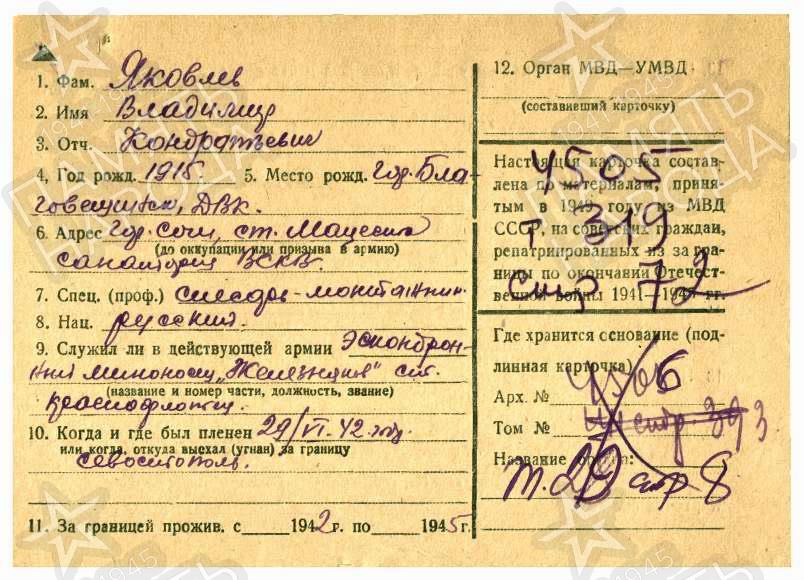 1. Фам. Яковлев
2. Имя Владимир
3. Отч. Кондратьевич
4, Год рожд. 1915г. 5. Место рожд. гор. Бла-
говещенск, ДВК.
6. Адрес гор. Сочи, ст. Мацеста
(до оккупации или призыва в армию)
санаторий ВСКВ.
7. Спец. (проф.) слесарь-монтажник
8. Нац. русский.
9. Служил ли в действующей армии
миноносец "Железняков" ст.
(название и номер части, должность, звание)
краснофлотец.
10. Когда и где был пленен 29/VI-42 году
или когда, откуда выехал (угнан) за границу
Севостополь.
11. За границей прожив. с 1942г. по 1945г.
12. Орган МВД—УМВД
(составивший карточку)
Настоящая карточка состав-
лена по материалам, приня-
тым в 1949 году из МВД
СССР, на советских граждан,
репатриированных из за гра-
ницы по окончании Отечест-
венной войны 1941—1945 гг.
4505
т 319
стр 72
Где хранится основание (под-
линная карточка)
Арх. №
Том № стр. 393
Название
т. 29 стр 8
ПАМЯТЬ
НАРОДА
1941-1945